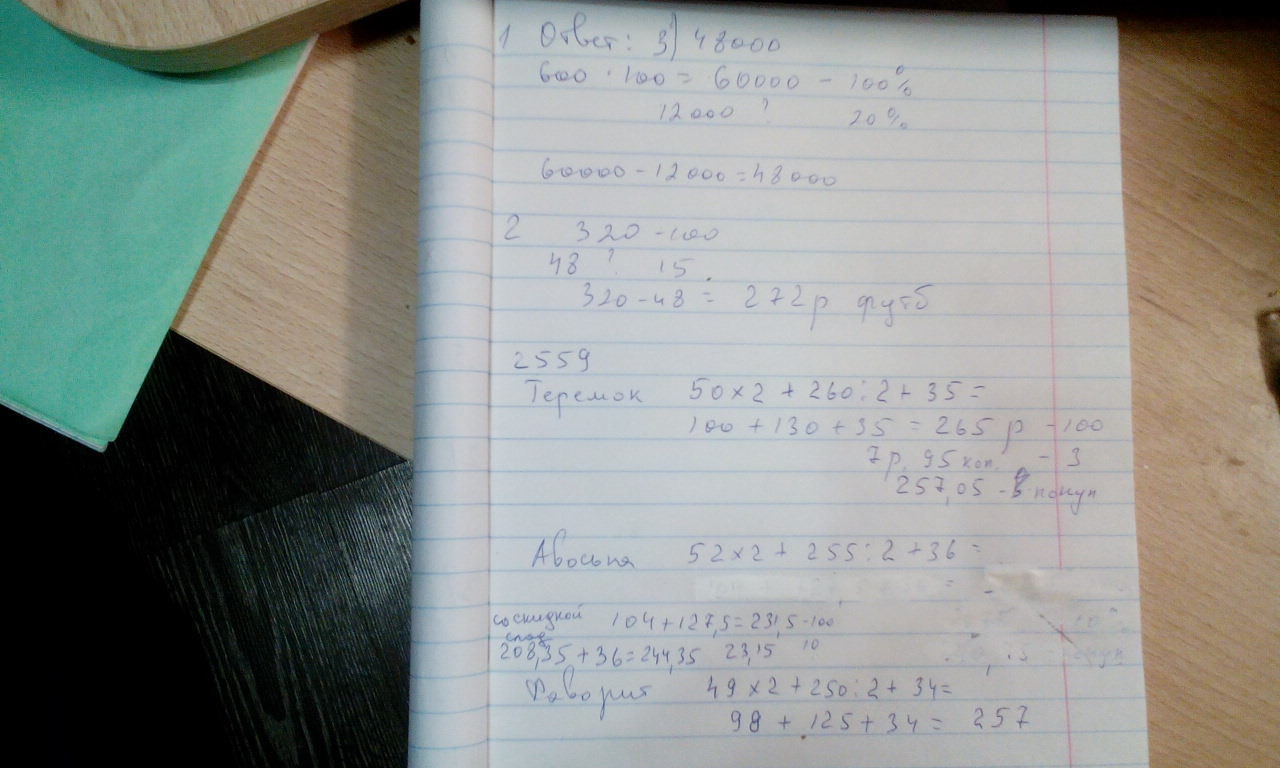 1 Ответ: 3) 48000
600 · 100 = 60000 - 100%
12000 ? 20%
60000 - 12000 = 48000
2 320 - 100
48 ? 15
320 - 48 = 272 р футб
2559
Теремок 50 x 2 + 260 : 2 + 35 =
100 + 130 + 35 = 265 р - 100
7 р. 95 коп. - 3
257,05 - покуп
Авоська 52 x 2 + 255 : 2 + 36 =
=
со скидкой 104 + 127,5 = 231,5 - 100
208,35 + 36 = 244,35 23,15 10
Фаворит 49 x 2 + 250 : 2 + 34 =
98 + 125 + 34 = 257